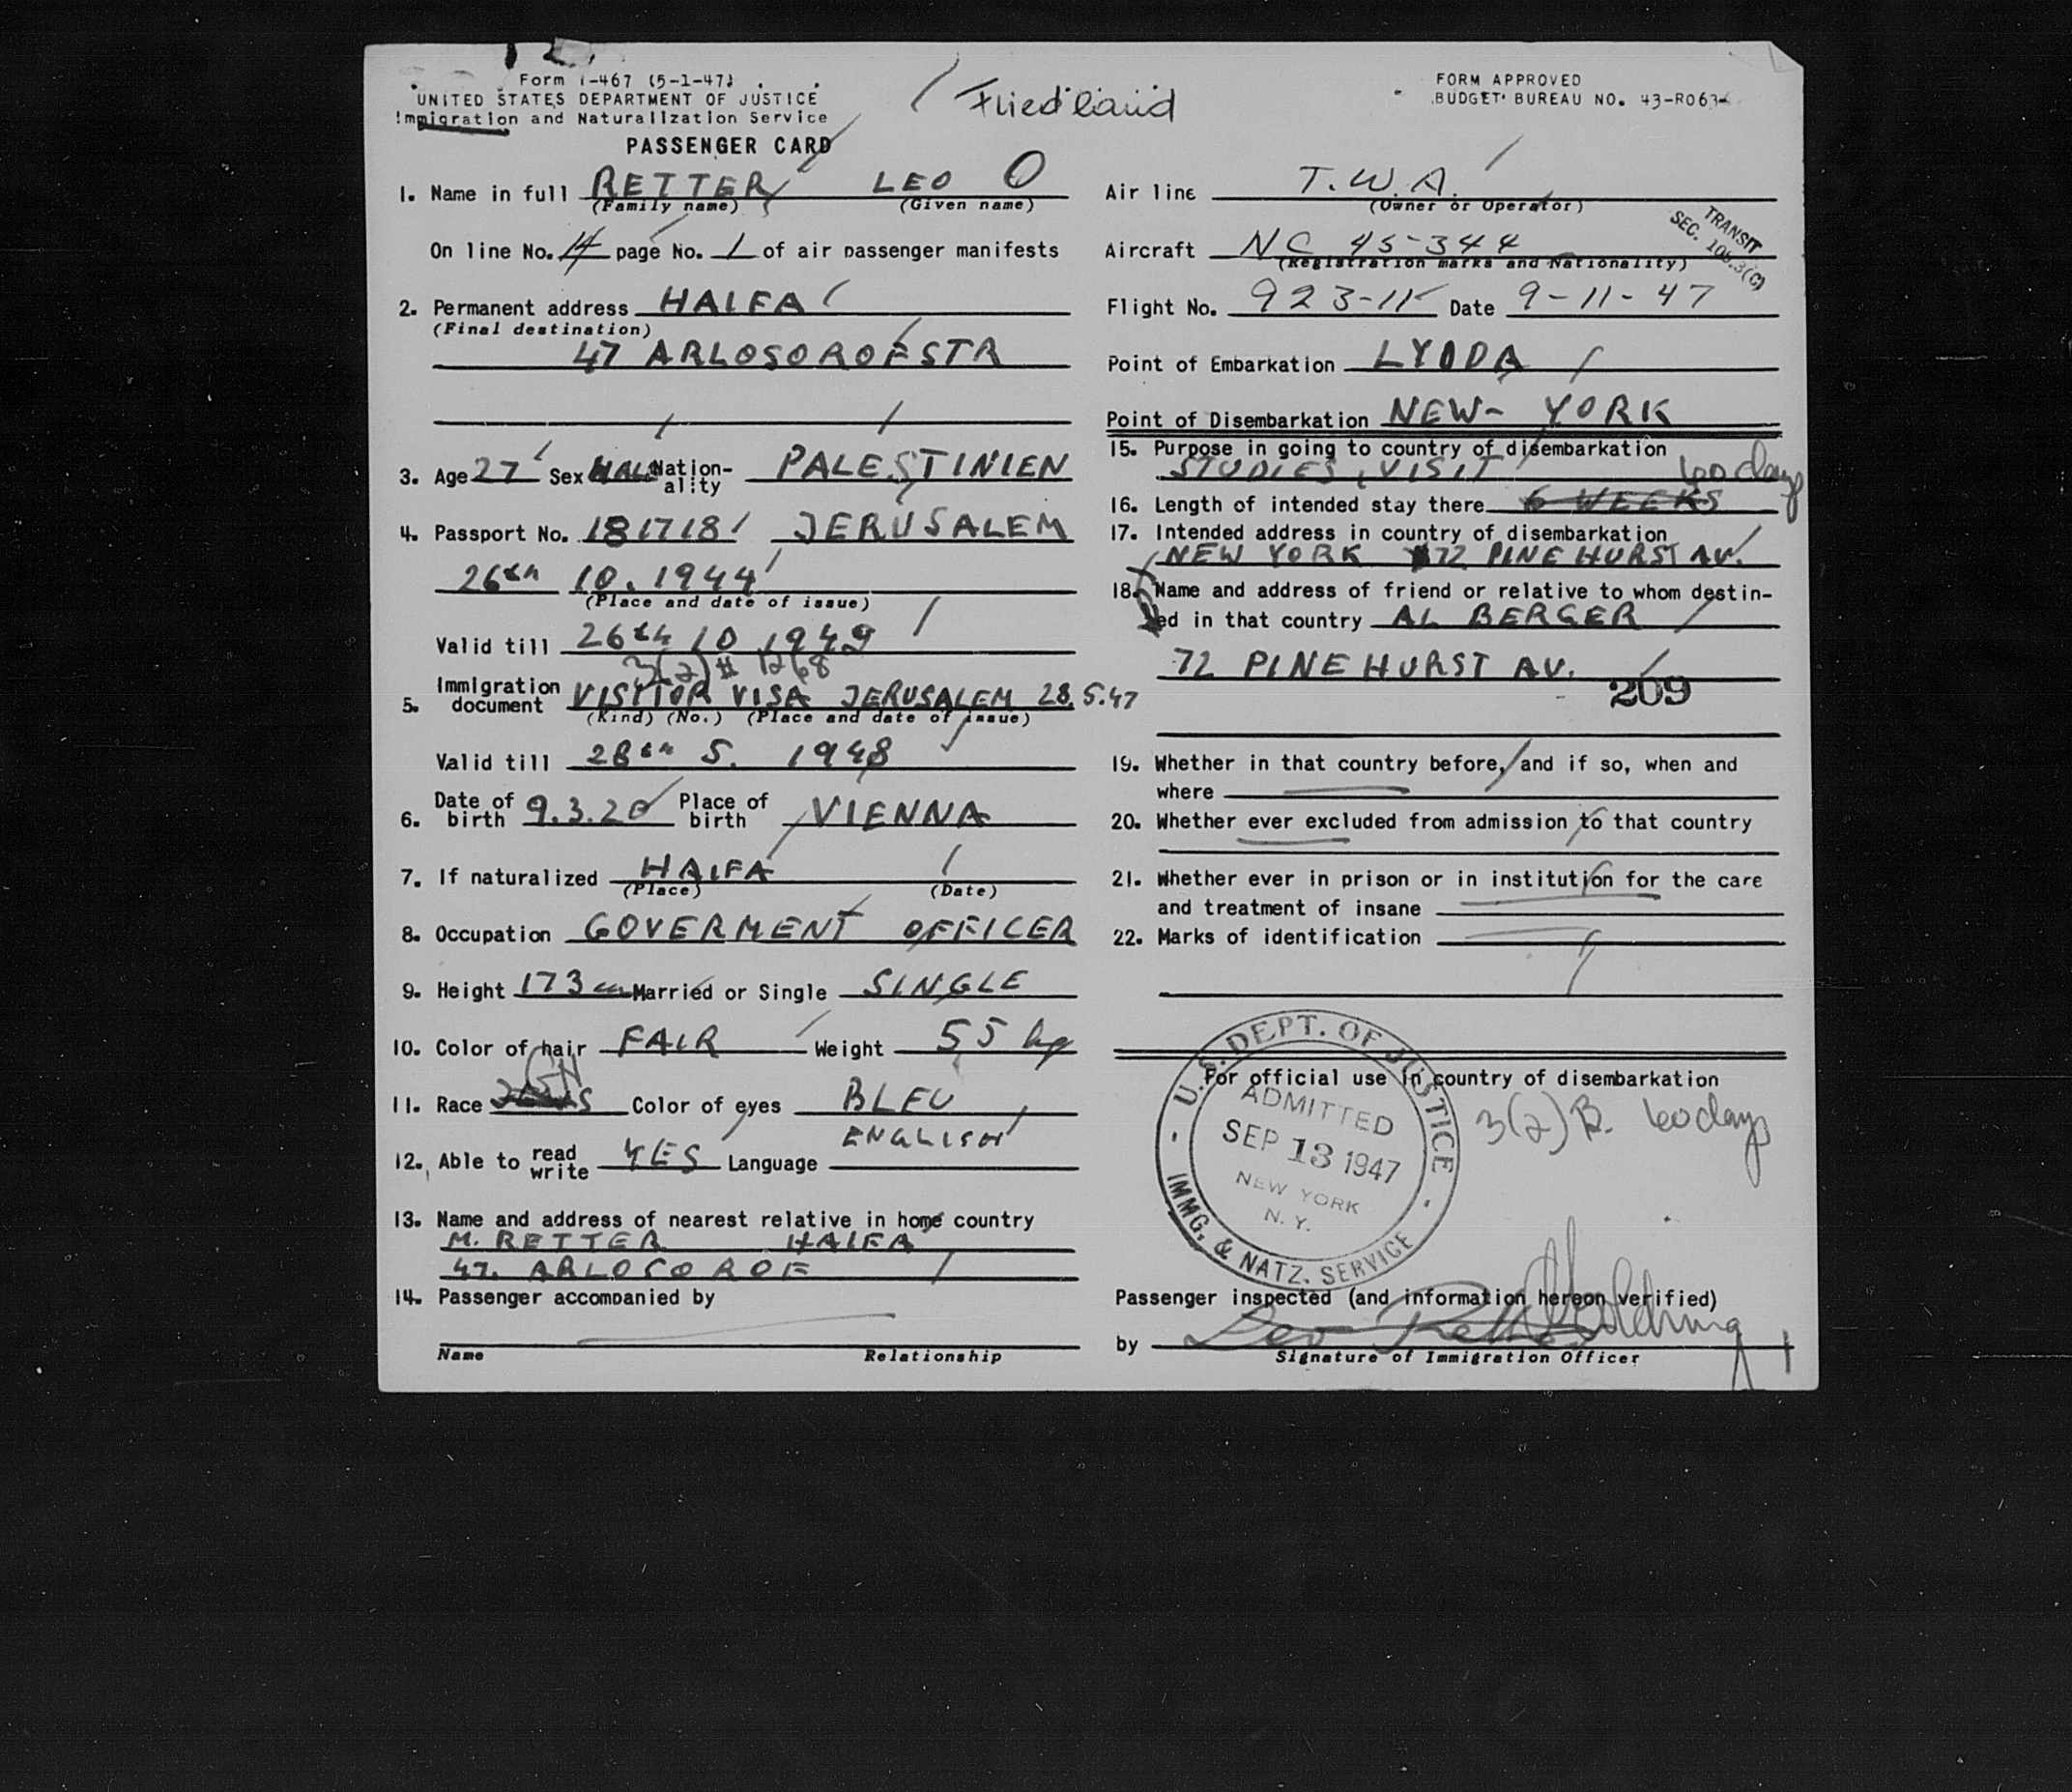 Form I-467 (5-1-47)
UNITED STATES DEPARTMENT OF JUSTICE
Immigration and Naturalization Service
PASSENGER CARD
Friedland
FORM APPROVED
BUDGET BUREAU NO. 43-R063
1. Name in full RETTER LEO O
(Family name) (Given name)
On line No. 14 page No. 1 of air passenger manifests
2. Permanent address HAIFA
(Final destination)
47 ARLOSOROFSTR
3. Age 27 Sex MALE Nationality PALESTINIEN
4. Passport No. 181718 JERUSALEM
26th 10. 1944
(Place and date of issue)
Valid till 26th 10 1949
3(2) # 1268
5. Immigration document VISITOR VISA JERUSALEM 28.5.47
(Kind) (No.) (Place and date of issue)
Valid till 28th 5. 1948
6. Date of birth 9.3.20 Place of birth VIENNA
7. If naturalized HAIFA
(Place) (Date)
8. Occupation GOVERMENT OFFICER
9. Height 173 cm Married or Single SINGLE
10. Color of hair FAIR Weight 55 kg
11. Race Color of eyes BLEU
ENGLISH
12. Able to read write YES Language
13. Name and address of nearest relative in home country
M. RETTER HAIFA
47. ARLOSOROF
14. Passenger accompanied by
Name Relationship
Air line T.W.A.
(Owner or Operator)
TRANSIT
SEC. 106.3(C)
Aircraft NC 45-344
(Registration marks and Nationality)
Flight No. 923-11 Date 9-11-47
Point of Embarkation LYDDA
Point of Disembarkation NEW-YORK
15. Purpose in going to country of disembarkation
STUDIES, VISIT 60 days
16. Length of intended stay there 6 WEEKS
17. Intended address in country of disembarkation
NEW YORK 72 PINEHURST AV.
18. Name and address of friend or relative to whom destin-
ed in that country AL BERGER
72 PINEHURST AV.
209
19. Whether in that country before, and if so, when and
where
20. Whether ever excluded from admission to that country
21. Whether ever in prison or in institution for the care
and treatment of insane
22. Marks of identification
For official use in country of disembarkation
U.S. DEPT. OF JUSTICE
ADMITTED
SEP 13 1947
NEW YORK
N. Y.
IMMG. & NATZ. SERVICE
3(2) B. 60 days
Passenger inspected (and information hereon verified)
by Leo Retter
Signature of Immigration Officer